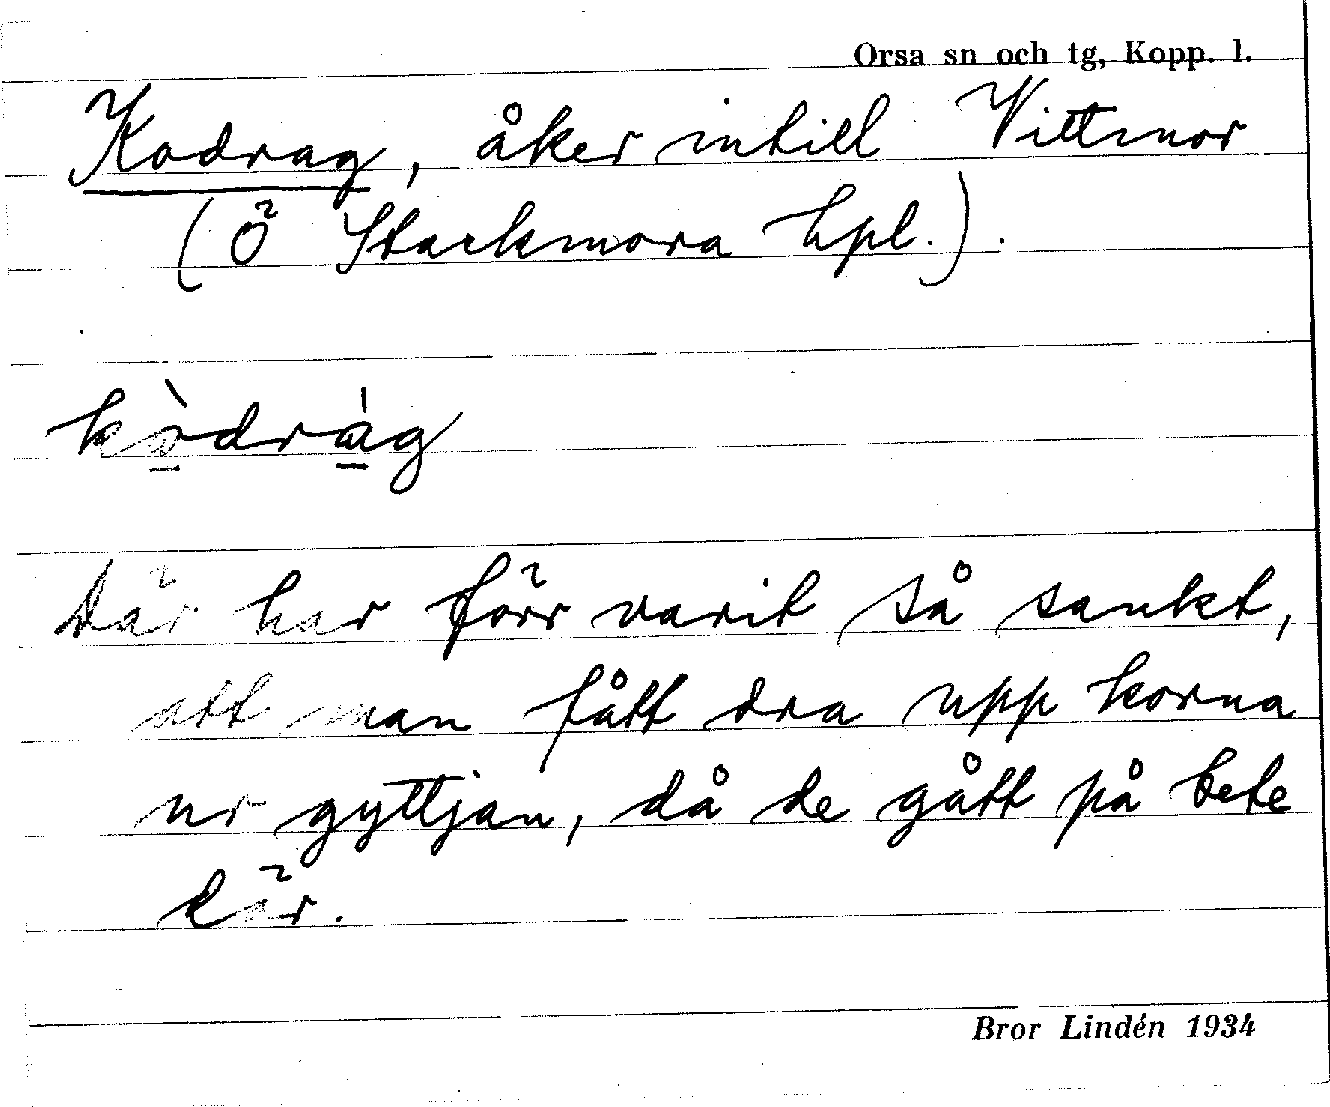 Orsa sn och tg, Kopp. l.
Kodrag, åker intill Vittmor
(Ö Stackmora hpl.).
kò̲dra̲̍g
Där har förr varit så sankt,
att man fått dra upp korna
ur gyttjan, då de gått på bete
där.
Bror Lindén 1934